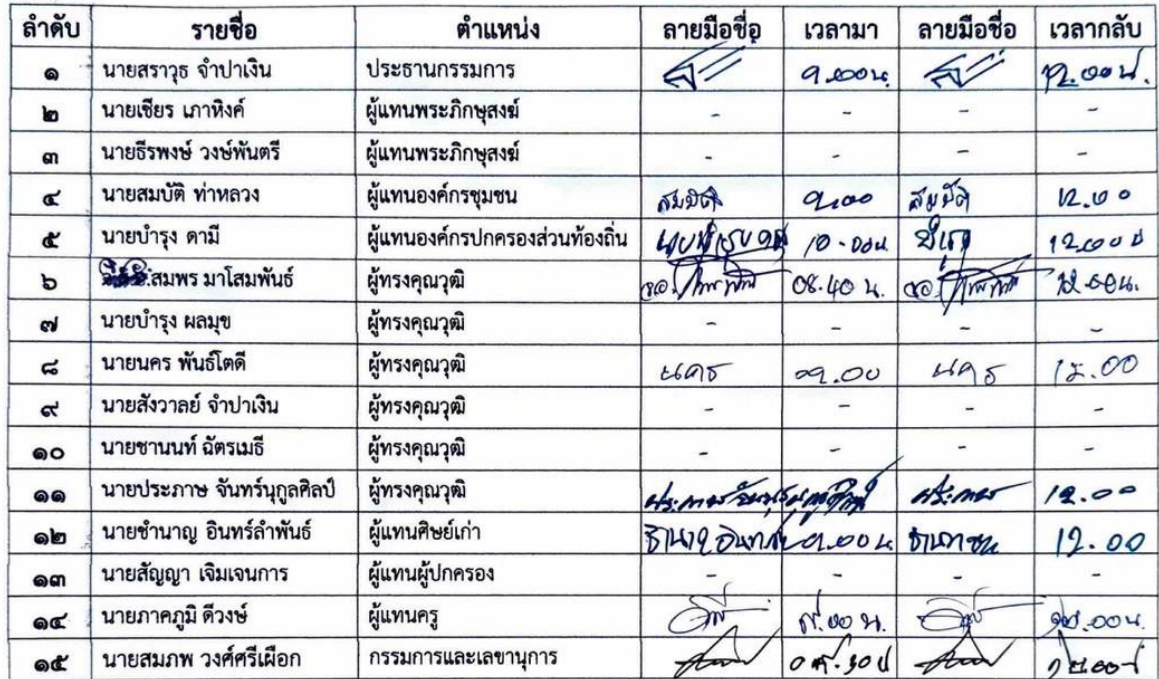 ลำดับ รายชื่อ ตำแหน่ง ลายมือชื่อ เวลามา ลายมือชื่อ เวลากลับ
๑ นายสราวุธ จำปาเงิน ประธานกรรมการ 9.00น. 12.00น.
๒ นายเชียร เภาหิงค์ ผู้แทนพระภิกษุสงฆ์ - - - -
๓ นายธีรพงษ์ วงษ์พันตรี ผู้แทนพระภิกษุสงฆ์ - - - -
๔ นายสมบัติ ท่าหลวง ผู้แทนองค์กรชุมชน สมบัติ 9.00 สมบัติ 12.00
๕ นายบำรุง ดามี ผู้แทนองค์กรปกครองส่วนท้องถิ่น 10.00น 12.00น
๖ สมพร มาโสมพันธ์ ผู้ทรงคุณวุฒิ 08.40 น. 12.00น.
๗ นายบำรุง ผลมุข ผู้ทรงคุณวุฒิ - - - -
๘ นายนคร พันธ์โตดี ผู้ทรงคุณวุฒิ นคร 09.00 นคร 12.00
๙ นายสังวาลย์ จำปาเงิน ผู้ทรงคุณวุฒิ - - - -
๑๐ นายชานนท์ ฉัตรเมธี ผู้ทรงคุณวุฒิ - - - -
๑๑ นายประภาษ จันทร์นุกูลศิลป์ ผู้ทรงคุณวุฒิ ประภาษ 12.00
๑๒ นายชำนาญ อินทร์ลำพันธ์ ผู้แทนศิษย์เก่า 9.00น 12.00
๑๓ นายสัญญา เจิมเจนการ ผู้แทนผู้ปกครอง - - - -
๑๔ นายภาคภูมิ ดีวงษ์ ผู้แทนครู ๙.๐๐ น. ๑๒.๐๐น.
๑๕ นายสมภพ วงศ์ศรีเผือก กรรมการและเลขานุการ